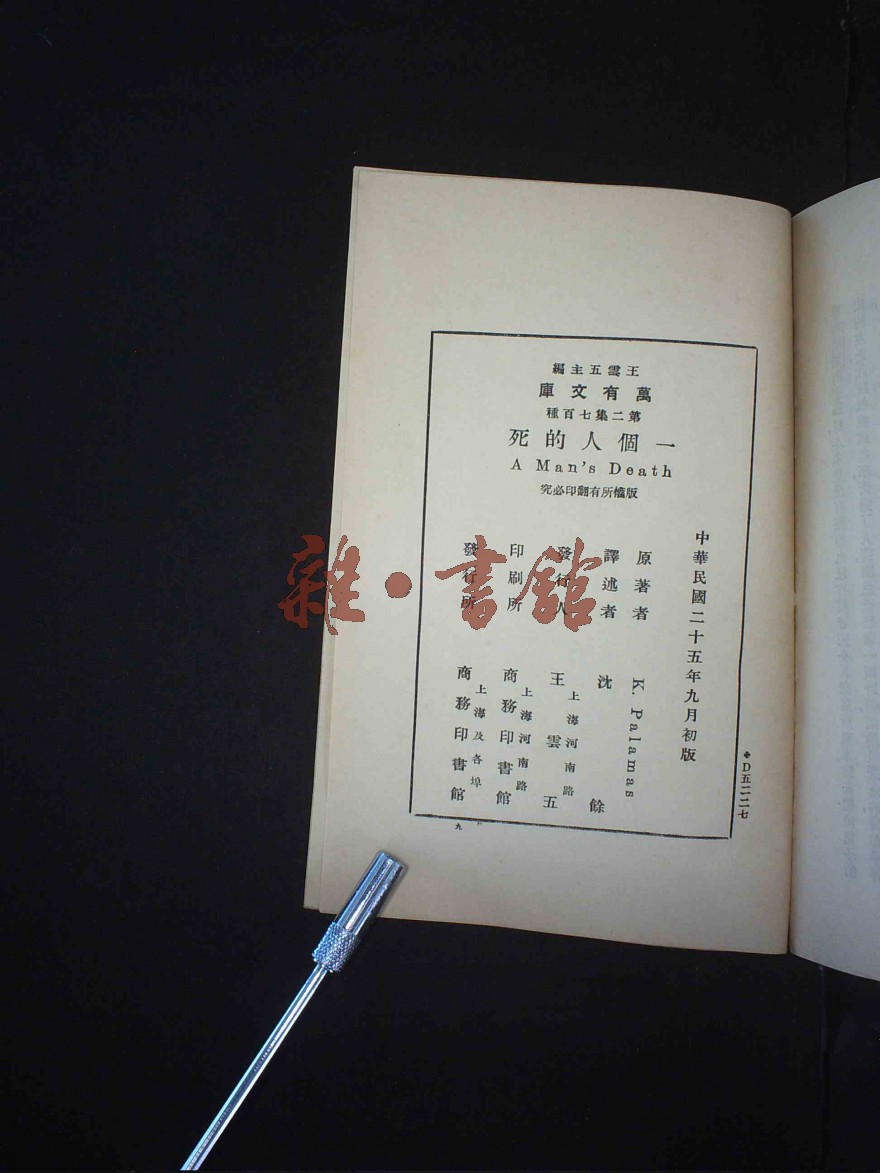 王雲五主編
萬有文庫
第二集七百種
一個人的死
A Man's Death
版權所有翻印必究
中華民國二十五年九月初版
原著者 K. Palamas
譯述者 沈餘
發行人 王雲五
上海河南路
印刷所 商務印書館
上海河南路
發行所 商務印書館
上海及各埠
❖D五二二七
九
雜·書館